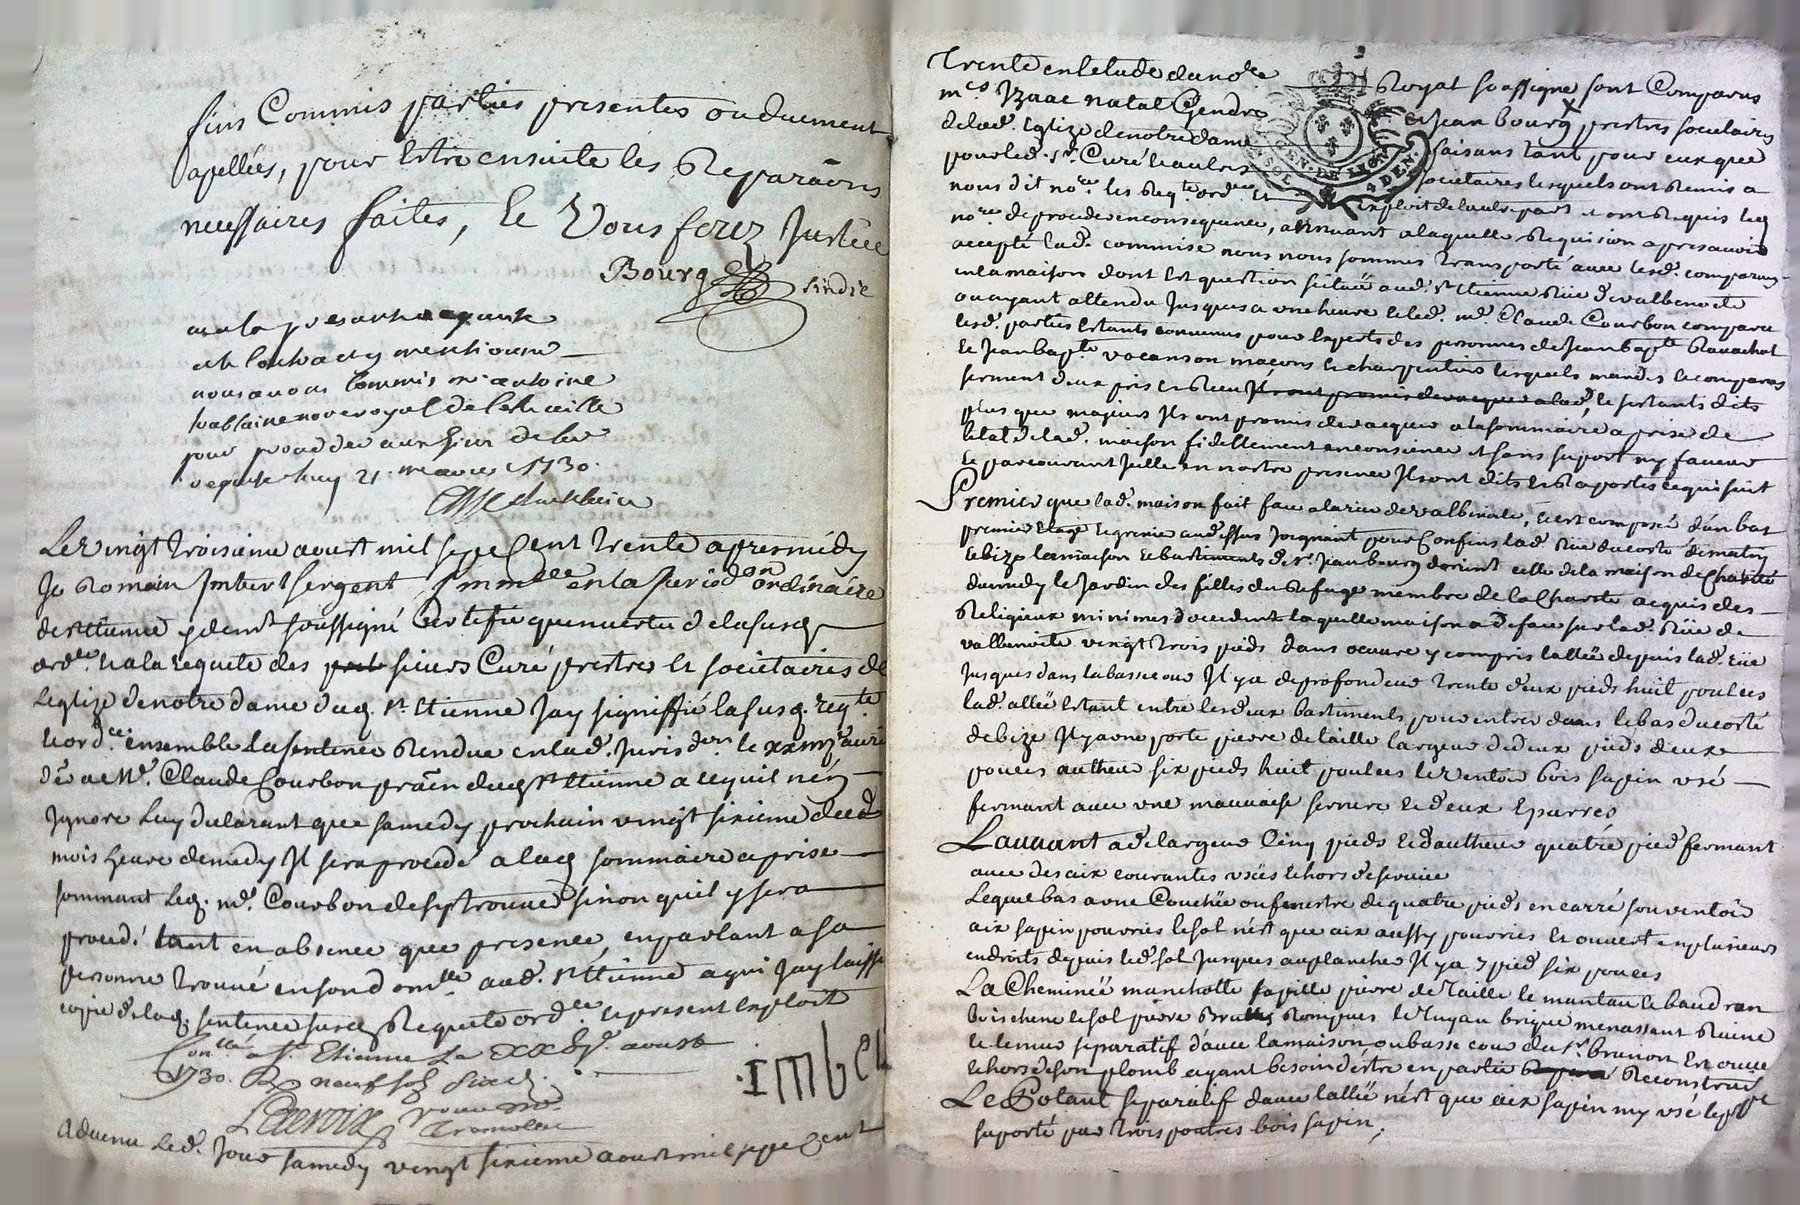 fins Commis parties presentes ou duement
apellées, pour Estre ensuite les Reparãons
necessaires faites, Et Vous ferez Justice
Bourg sindic
veu la presante requeste
nous avons Commis me antoine
royal de
pour proceder aux fins de la
requeste ce 21 1730.
Le vingt troisieme aoust mil sept Cent trente apres midy
Je Romain Imbert sergent Immlle en la Jurisdon ordinaire
de st Etienne y demt soussigné Certifie qu'en vertu de la susd
ordce et a la requete des sieurs Curé prestre et societaires de
Leglize de notre dame dud. st Etienne Jay signiffié la susd. reqte
et ordce ensemble la sentence Rendue en lad. Jurisdon le
a Me. Claude Courbon dud st Etienne a ce quil n'en
Ignore Luy declarant que samedy prochain vingt sixieme dud
mois heure de midy Il sera procedé a lad sommaire aprise
sommant Led. me. Courbon de sy trouver sinon quil y sera
proced. tant en absence que presence, en parlant a sa
personne trouvé en son domlle aud. st Etienne a qui Jay laissé
copie de lad. sentence susd Requete ordce et present Exploit
Conllé a St Etienne Le aoust
1730. Rx neuf sols
Lacroix
IMbert
Advenu Led. Jour samedy vingt sixieme aoust mil sept Cent
trente en letude du nore Royal soussigné sont Comparus
mes Izaac natal Gendre et Jean bourg prestres societaires
de lad. Eglize de notre dame faisans tant pour eux que
pour led. sr. Curé et autres societaires lesquels ont Remis a
nous dit nore. les Reqte ordce et exploit de lautre part et ont Requis led
nore de proceder en consequence, adherant a laquelle Requision apres avoir
accepté lad. commise nous nous sommes transporté avec lesd. comparans
en la maison dont Est question scituée aud. st Etienne Rüe de valbenoite
ou ayant attendu Jusques a une heure et led. me. Claude Courbon comparu
lesd. parties Estants convenus pour Experts des personnes de Jean bapte Ravachol
Et Jean bapte vocanson maçons et charpentiers lesquels mandés et comparus
serment d'eux pris et Receu Ils ont promis de vacquer a lad, et s'estants dits
plus que majeurs Ils ont promis de vacquer a la sommaire aprise de
letat de lad. maison fidellement en consience et sans suport ny faveur
Et parcourant Jcelle en nostre presence Ils ont dit et Raporté ce qui suit
Premier que lad. maison fait face a la rüe de valbenoite, et est composé d'un bas
premier Etage et grenier au dessus Joignant pour Confins lad. Rüe du coté de matin
de bize la maison et bastiments de sr. Jean bourg de vent celle de la maison de Charité
du midy le Jardin des filles du Refuge membre de la Charité acquis des
Religieux minimes d'occident laquelle maison a de face sur lad. Rüe de
valbenoite vingt trois pieds dans oeuvre y compris l'allée depuis lad. rüe
Jusques dans la basse cour Il y a de profondeur trente deux pieds huit poulces
lad. allée Estant entre les deux bastiments pour entrer dans le bas du coté
de bize Il y a une porte pierre de taille largeur de deux pieds deux
pouces auteur six pieds huit poulces le ventoir bois sapin usé
fermant avec une mauvaise serrure et deux Eparres
Lauvant a de largeur Cinq pieds et d'auteur quatre pied fermant
avec des aix courantes usées et hors de service
Lequel bas a une Couchée ou fenestre de quatre pieds en carré son ventoir
aix sapin pourries le sol n'est que aix aussy pourries et ouvert en plusieurs
endroits depuis led. sol Jusques au plancher Il y a 7 pied six pouces
La Cheminée manchotte pierre de Taille le manteau
bois chene le sol pierre Rompues le tuyau brique menassant Ruine
et le mur separatif d'avec la maison ou basse cour du sr. brunon Est creux
et hors de son plomb ayant besoin d'être en partie Reconstruit
Le Potant separatif d'avec l'allée n'est que aix sapin my usé le
suporté par trois poutres bois sapin.